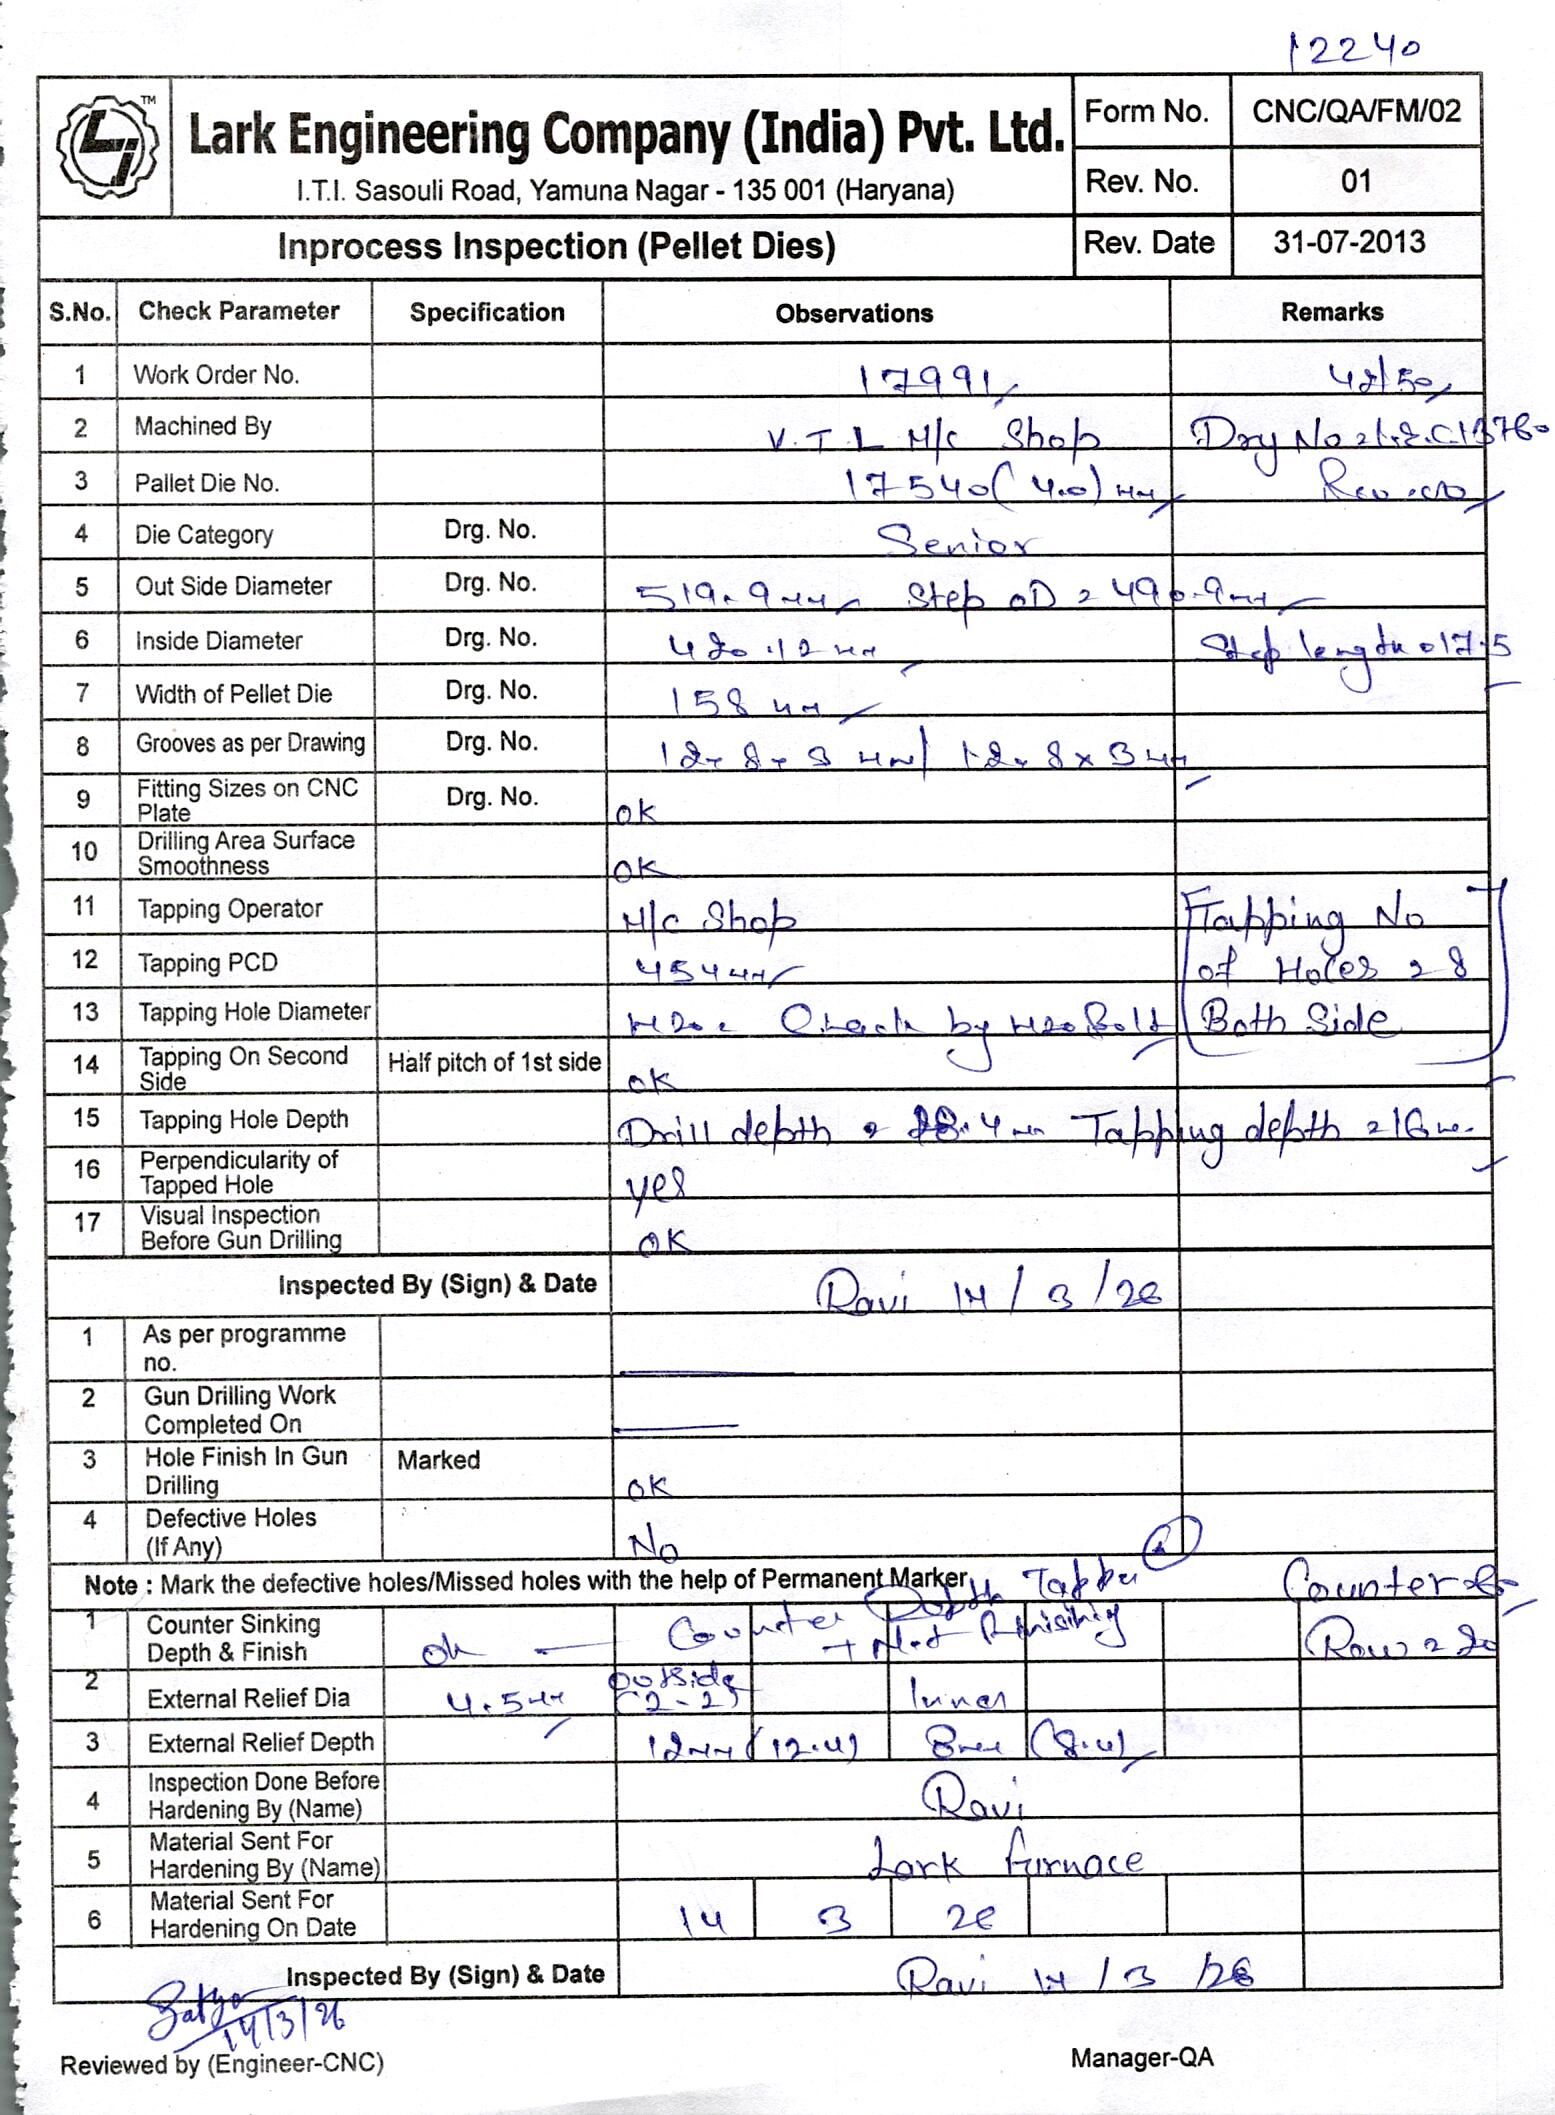 12240
Lark Engineering Company (India) Pvt. Ltd.
I.T.I. Sasouli Road, Yamuna Nagar - 135 001 (Haryana)
Form No. CNC/QA/FM/02
Rev. No. 01
Inprocess Inspection (Pellet Dies) Rev. Date 31-07-2013
S.No. Check Parameter Specification Observations Remarks
1 Work Order No. 17991 42/50
2 Machined By V.T.L M/c Shop
3 Pallet Die No. 17540 (4.0) mm
4 Die Category Drg. No. Senior
5 Out Side Diameter Drg. No. 519.9mm Step OD = 490.9mm
6 Inside Diameter Drg. No. 420.12 mm Step length = 17.5
7 Width of Pellet Die Drg. No. 158 mm
8 Grooves as per Drawing Drg. No. 12x8x3 mm/ 12x8x3 mm
9 Fitting Sizes on CNC Plate Drg. No. OK
10 Drilling Area Surface Smoothness OK
11 Tapping Operator M/c Shop Tapping No
12 Tapping PCD 454mm of Holes = 8
13 Tapping Hole Diameter M20 = Check by M20 Bolt Both Side
14 Tapping On Second Side Half pitch of 1st side OK
15 Tapping Hole Depth Drill depth = 28.4mm Tapping depth = 16mm
16 Perpendicularity of Tapped Hole yes
17 Visual Inspection Before Gun Drilling OK
Inspected By (Sign) & Date Ravi 14/3/26
1 As per programme no.
2 Gun Drilling Work Completed On
3 Hole Finish In Gun Drilling Marked OK
4 Defective Holes (If Any) No
Note : Mark the defective holes/Missed holes with the help of Permanent Marker
1 Counter Sinking Depth & Finish ok Counter Depth Row = 20
2 External Relief Dia 4.5mm outside (2-2) Inner
3 External Relief Depth 12mm (12.4) 8mm (8.4)
4 Inspection Done Before Hardening By (Name) Ravi
5 Material Sent For Hardening By (Name) Lark furnace
6 Material Sent For Hardening On Date 14 3 26
Inspected By (Sign) & Date Ravi 14/3/26
Satya
14/3/26
Reviewed by (Engineer-CNC) Manager-QA